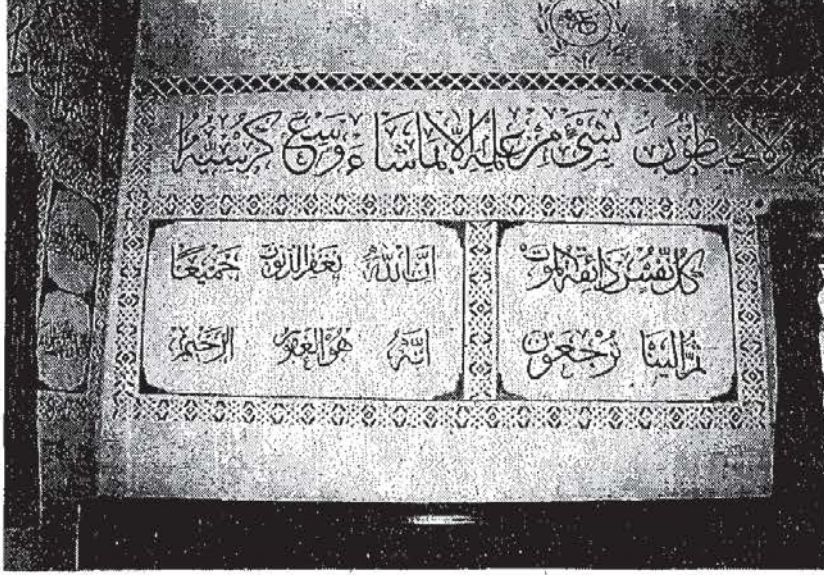 لا يحيطون بشئ من علمه الا بما شاء وسع كرسيه
كل نفس ذائقة الموت
ثم الينا ترجعون
ان الله يغفر الذنوب جميعا
انه هو الغفور الرحيم